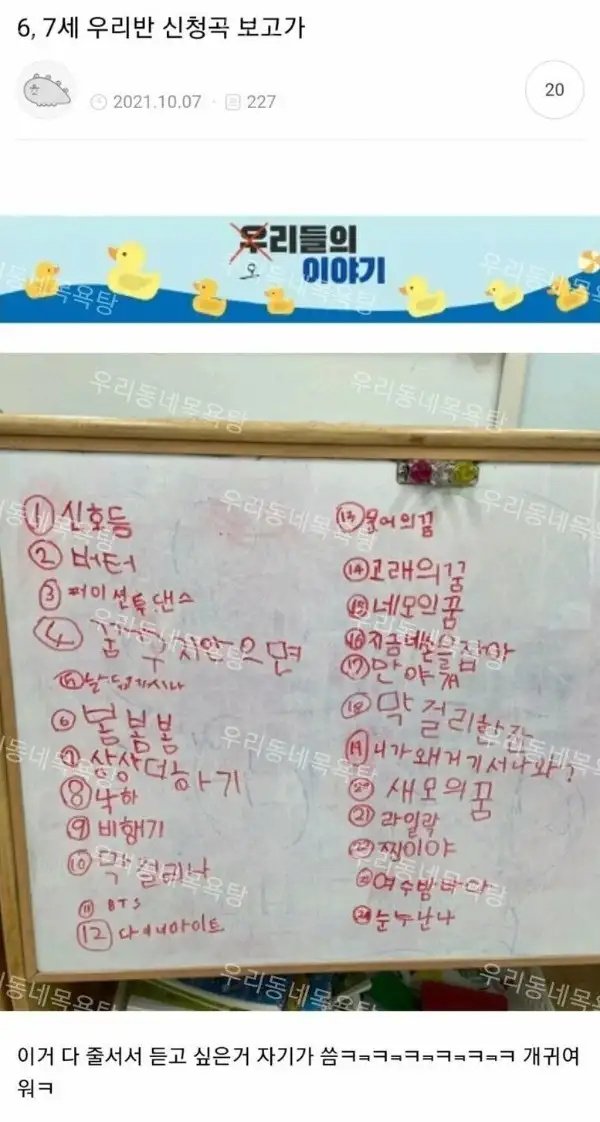 6, 7세 우리반 신청곡 보고가
2021.10.07 · 227
20
우리들의
오 이야기
우리동네목욕탕
① 신호등
② 버터
③ 퍼미션투댄스
④ 꿈꾸지않으면
⑥ 봄봄봄
⑦ 상상더하기
⑧ 낙하
⑨ 비행기
⑩ 막걸리나
⑪ BTS
⑫ 다이너마이트
⑬ 문어의꿈
⑭ 고래의꿈
⑮ 네모의꿈
⑯ 지금네손을잡아
⑰ 만약에
⑱ 막걸리한잔
⑲ 니가왜거기서나와?
⑳ 새오의꿈
㉑ 라일락
찍이야
여수밤바다
눈누난나
이거 다 줄서서 듣고 싶은거 자기가 씀ㅋㅋㅋㅋㅋㅋㅋㅋㅋ 개귀여
워ㅋ